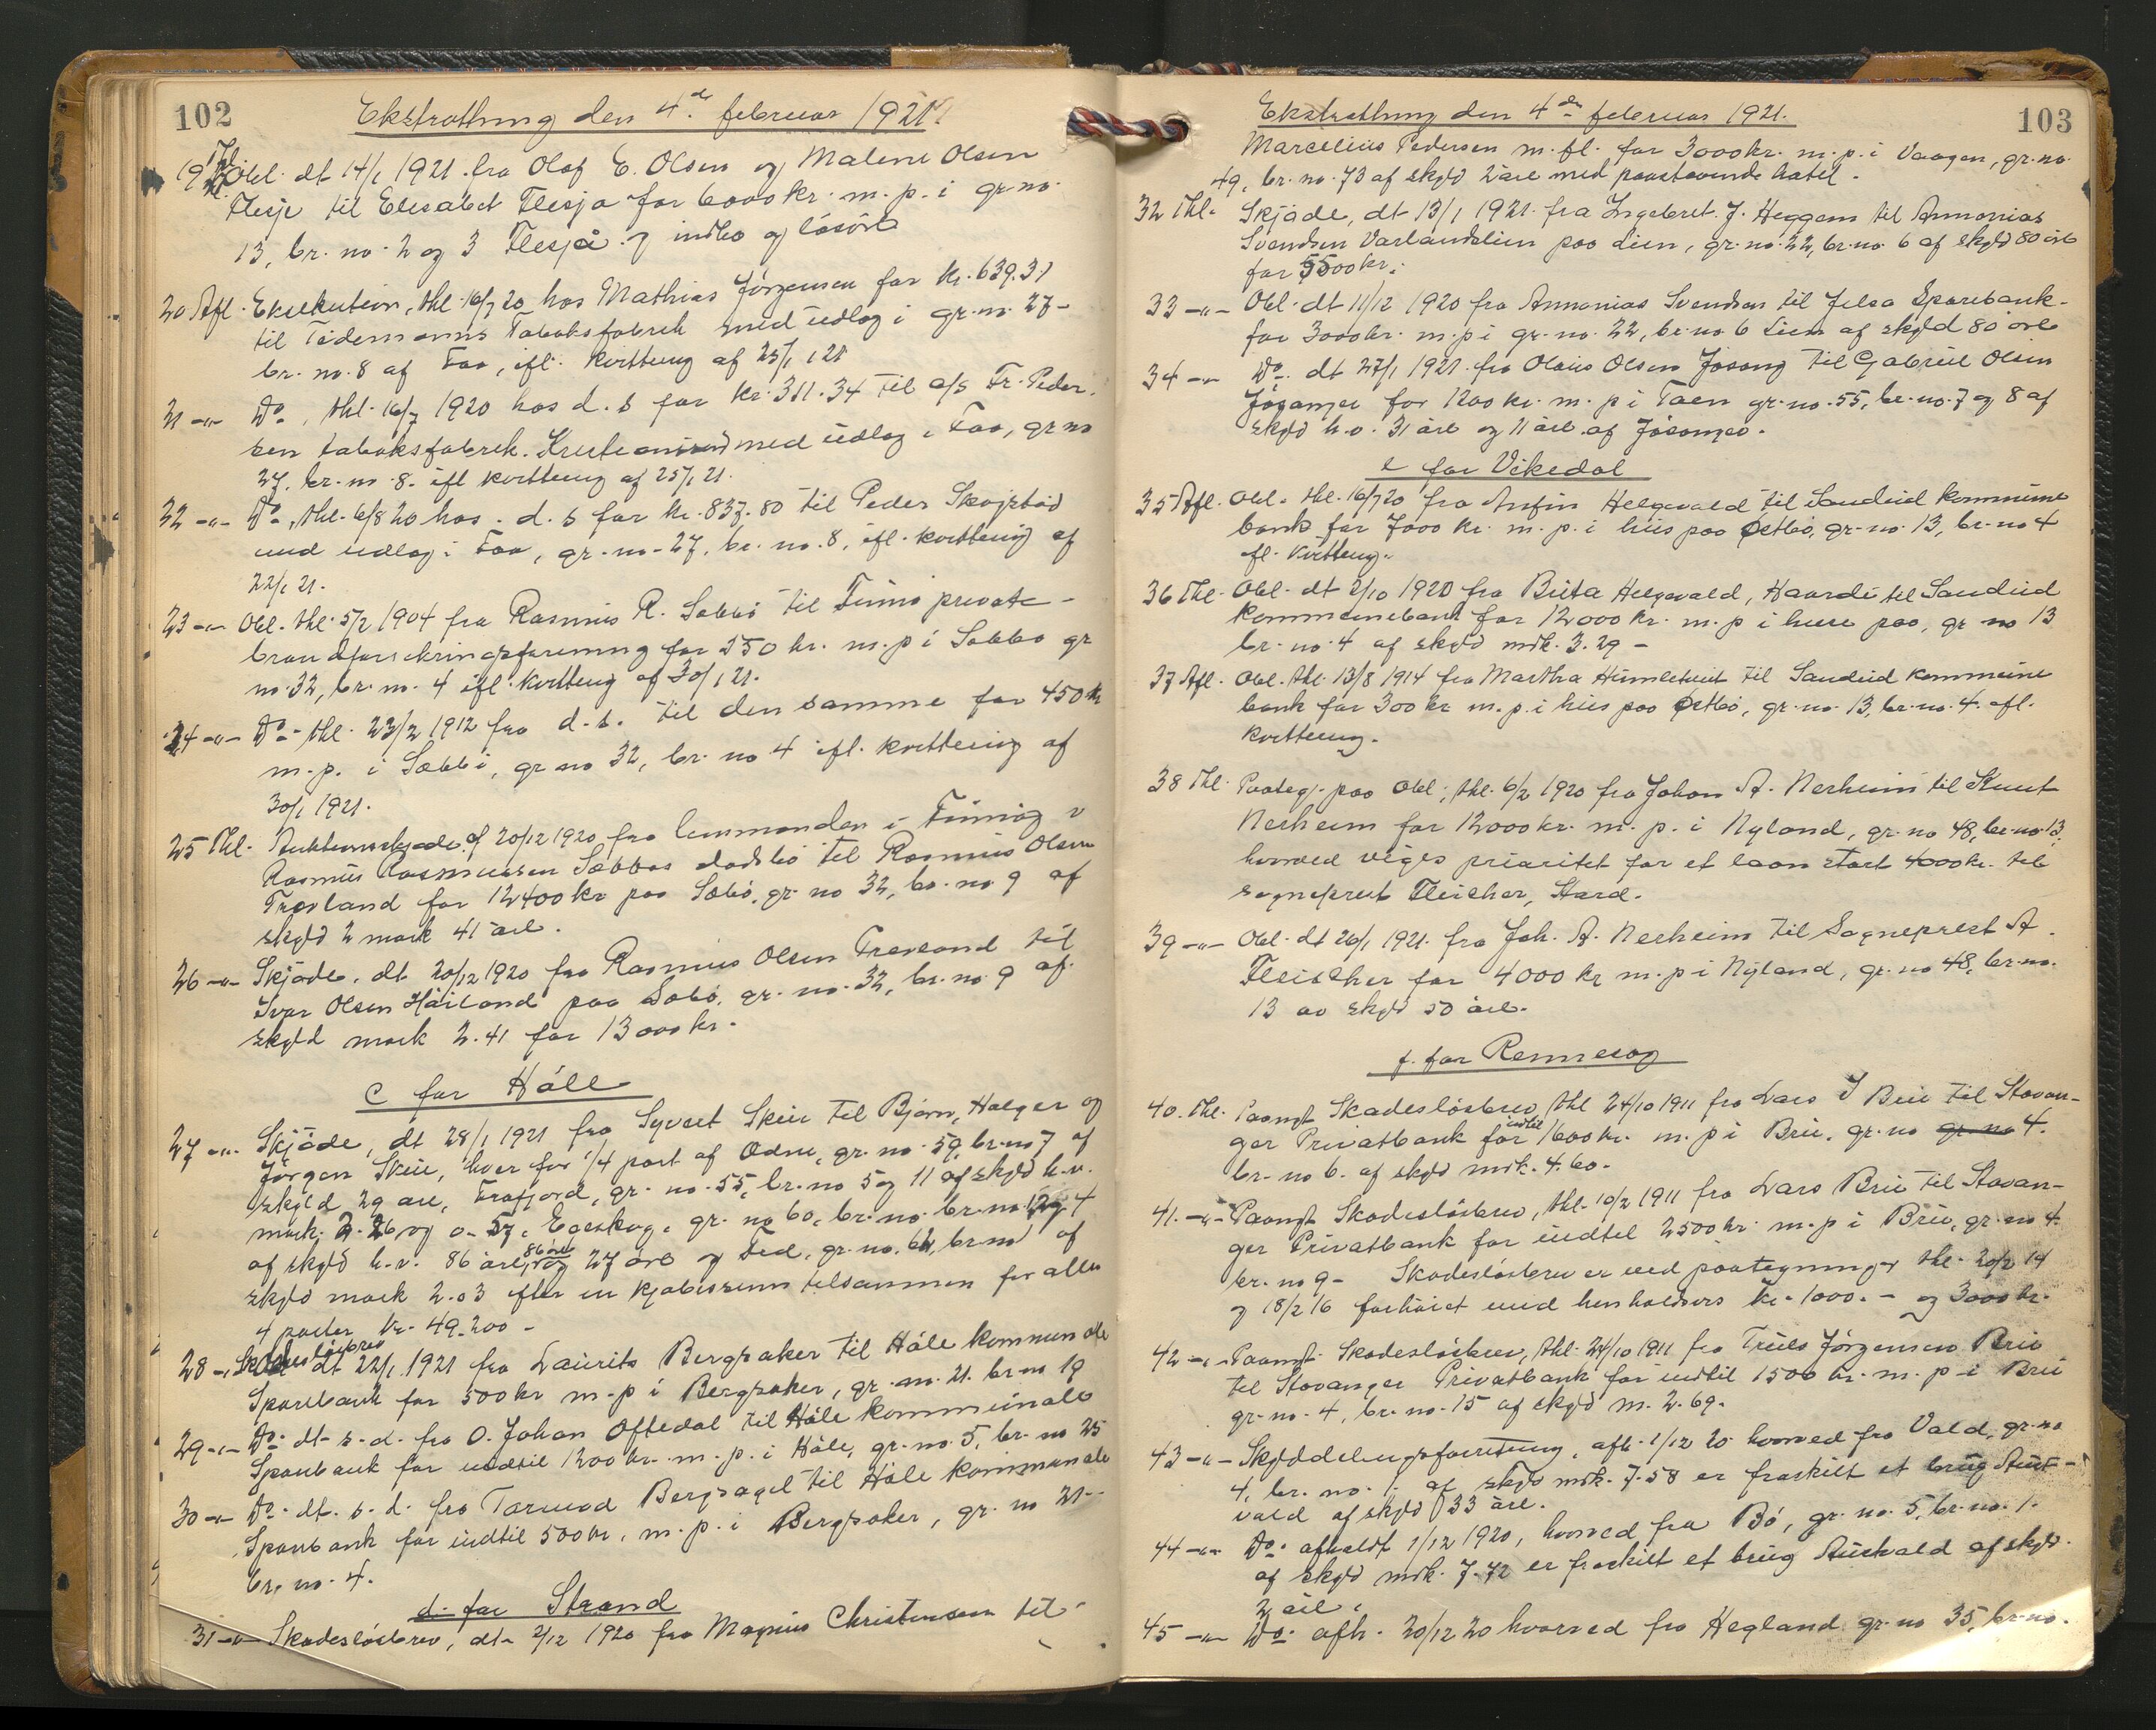 102
Ekstrathing den 4de februar 1921
19 Thl. Obl. dt 14/1 1921 fra Olaf E. Olsen og Malene Olsen
Flesje til Elisabet Flesjå for 6000 kr. m. p. i gr. no.
13, br. no. 2 og 3 Flesjå og indbo og løsøre
20 Afl. Eksekution, thl. 16/7 20 hos Mathias Jörgensen for kr. 639.31
til Tidemanns Tobaksfabrik med udlæg i gr. no. 27 -
br. no. 8 af Foo, ifl. kvittering af 25/1 21
21 -"- Do., thl. 16/7 1920 hos d. s for kr. 311.34 til a/s Fr. Peder-
sen tobaksfabrik. Kristiania med udlæg i Foo, gr. no
27, br. no. 8. ifl kvittering af 25/1 21.
22 -"- Do., thl. 6/8 20 hos. d. s for kr. 837.80 til Peder Skogstad
med udlæg i Foo, gr. no. 27, br. no. 8, ifl. kvittering af
22/1 21.
23 -"- Obl. thl. 5/2 1904 fra Rasmus R. Sabbö til Finnö private -
brandforsikringsforening for 250 kr. m. p i Sabbö gr
no. 32, br. no. 4 ifl. kvittering af 30/1 21.
24 -"- Do. thl. 23/2 1912 fra d. s. til den samme for 450 kr
m. p. i Sæbbö, gr no 32, br. no 4 ifl. kvittering af
30/1 1921.
25 Thl. Auktionsskjøde af 20/12 1920 fra lensmanden i Finnöy i
Rasmus Rasmussen Sæbbøs dødsbo til Rasmus Olsen
Træland for 12400 kr paa Sæbö, gr. no 32, br. no. 9 af
skyld 2 mark 41 øre.
26 -"- Skjøde, dt 20/12 1920 fra Rasmus Olsen Træland til
Ivar Olsen Håiland paa Sæbö, gr. no. 32, br. no. 9 af
skyld mark 2.41 for 13000 kr.
c for Höle
27 -"- Skjøde, dt 28/1 1921 fra Syvert Skeie til Bjørn, Holger og
Jørgen Skeie, hver for 1/4 part af Odne, gr. no. 59, br. no 7 af
skyld 29 øre, Frafjord, gr. no. 55, br. no 5 og 11 af skyld h. v.
mark 2.26 og 0.57, Eggeskog, gr. no 60, br. no. br. no. 1, 2 og 4
af skyld h. v. 86 øre, 86 øre og 27 øre og Fed, gr. no. 61, br. no 1 af
skyld mark 2.03 efter en kjøbesum tilsammen for alle
4 parter kr. 49.200 -
28 -"- Skadesløsbrev dt 22/1 1921 fra Laurits Bergsaker til Höle kommunale
Sparebank for 500 kr m. p i Bergsaker, gr. no. 21. br. no 19
29 -"- Do. dt. s. d. fra O. Johan Oftedal til Höle kommunale
Sparebank for indtil 1200 kr. m. p. i Höle, gr. no. 5, br. no 25
30 -"- Do. dt. s. d. fra Tarand Bergsagel til Höle kommunale
Sparebank for indtil 500 kr. m. p. i Bergsaker, gr. no 21 -
br. no. 4.
d. for Strand
31 -"- Skadesløsbrev, dt. 2/12 1920 fra Magnus Christensen til
103
Ekstrathing den 4de februar 1921.
Marcelius Pedersen m. fl. for 3000 kr. m. p. i Vaagen, gr. no.
49, br. no. 73 af skyld 2 øre med paastaaende hotel.
32 Thl. Skjøde, dt 13/1 1921 fra Ingebret J. Heggem til Annanias
Svendsen Varlandslien paa Lien, gr. no. 22, br. no. 6 af skyld 80 øre
for 5500 kr.
33 -"- Obl. dt 11/12 1920 fra Annanias Svendsen til Jelsa Sparebank.
for 3000 kr. m. p i gr. no. 22, br. no 6 Lien af skyld 80 øre
34 -"- Do. dt 27/1 1921 fra Olaus Olsen Jøsang til Gabriel Olsen
Jøsanger for 1200 kr. m. p i Toen gr. no. 55, br. no. 7 og 8 af
skyld h. v. 31 øre og 11 øre af Jøsanger.
e for Vikedal
35 Afl. Obl. thl. 16/7 20 fra Anfin Helgevald til Sandeid kommune
bank for 7000 kr. m. p. i hus paa Østbö, gr. no. 13, br. no 4
ifl. kvittering.
36 Thl. Obl. dt 2/10 1920 fra Brita Helgevald, Haarde til Sandeid
kommunebank for 12000 kr. m. p i huse paa, gr no 13
br. no. 4 af skyld mrk. 3.29 -
37 Afl. Obl. thl. 13/8 1914 fra Martha Himletveit til Sandeid kommune
bank for 300 kr m. p. i hus paa Østbö, gr. no. 13, br. no. 4. ifl.
kvittering.
38 Thl. Paategn. paa Obl., thl. 6/2 1920 fra Johan A. Nerheim til Knut
Nerheim for 12000 kr. m. p. i Nyland, gr. no 48, br. no. 13,
hvorved viges prioritet for et laan stort 4000 kr. til
sogneprest Fleischer, Stord.
39 -"- Obl. dt 26/1 1921. fra Joh. A. Nerheim til Sogneprest A.
Fleischer for 4000 kr m. p i Nyland, gr. no 48, br. no.
13 av skyld 50 øre.
f. for Rennesøy
40. Thl. Paategn. Skadesløsbrev, thl 24/10 1911 fra Lars I Brue til Stavan-
ger Privatbank for indtil 1600 kr. m. p i Brue, gr. no gr. no 4.
br. no 6. af skyld mrk. 4.60.
41. -"- Paategn. Skadesløsbrev, thl. 10/2 1911 fra Lars Brue til Stavan-
ger Privatbank for indtil 2500 kr. m. p i Brue, gr. no 4
br. no 9 - Skadesløsbrev er ved paategninger thl. 20/2 14
og 18/2 16 forhøiet med henholdsvis kr. 1000. - og 3000 kr.
42 -"- Paategn. Skadesløsbrev, thl. 24/10 1911 fra Truls Jørgensen Brue
til Stavanger Privatbank for indtil 1500 kr. m. p i Brue
gr. no. 4, br. no. 15 af skyld m. 2.69.
43 -"- Skylddelingsforretning, afh. 1/12 20 hvorved fra Vald, gr. no
4, br. no. 1. af skyld mrk. 7.58 er fraskilt et brug Aust-
vald af skyld 33 øre.
44 -"- Do. afholdt 1/12 1920, hvorved fra Bö, gr. no. 5, br. no. 1.
af skyld mrk. 7.72 er fraskilt et brug Austvald af skyld.
2 øre.
45 -"- Do. afh. 20/12 20 hvorved fra Hegland gr. no 35, br. no.